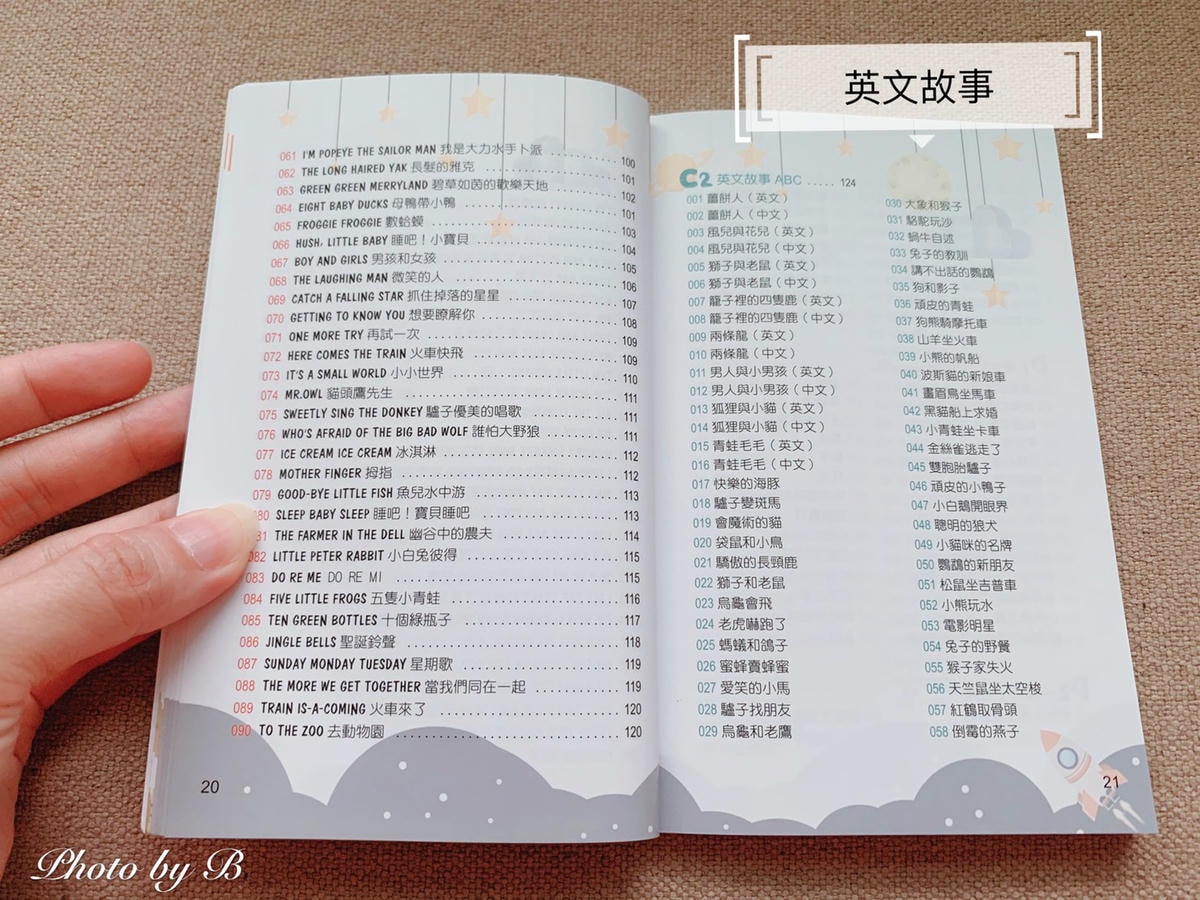 英文故事
061 I'M POPEYE THE SAILOR MAN 我是大力水手卜派 ........ 100
062 THE LONG HAIRED YAK 長髮的雅克 ........ 101
063 GREEN GREEN MERRYLAND 碧草如茵的歡樂天地 ........ 101
064 EIGHT BABY DUCKS 母鴨帶小鴨 ........ 102
065 FROGGIE FROGGIE 數蛤蟆 ........ 101
066 HUSH, LITTLE BABY 睡吧！小寶貝 ........ 103
067 BOY AND GIRLS 男孩和女孩 ........ 104
068 THE LAUGHING MAN 微笑的人 ........ 105
069 CATCH A FALLING STAR 抓住掉落的星星 ........ 106
070 GETTING TO KNOW YOU 想要瞭解你 ........ 107
071 ONE MORE TRY 再試一次 ........ 108
072 HERE COMES THE TRAIN 火車快飛 ........ 109
073 IT'S A SMALL WORLD 小小世界 ........ 109
074 MR.OWL 貓頭鷹先生 ........ 110
075 SWEETLY SING THE DONKEY 驢子優美的唱歌 ........ 111
076 WHO'S AFRAID OF THE BIG BAD WOLF 誰怕大野狼 ........ 111
077 ICE CREAM ICE CREAM 冰淇淋 ........ 112
078 MOTHER FINGER 拇指 ........ 112
079 GOOD-BYE LITTLE FISH 魚兒水中游 ........ 113
80 SLEEP BABY SLEEP 睡吧！寶貝睡吧 ........ 113
81 THE FARMER IN THE DELL 幽谷中的農夫 ........ 114
082 LITTLE PETER RABBIT 小白兔彼得 ........ 115
083 DO RE ME DO RE MI ........ 115
084 FIVE LITTLE FROGS 五隻小青蛙 ........ 116
085 TEN GREEN BOTTLES 十個綠瓶子 ........ 117
086 JINGLE BELLS 聖誕鈴聲 ........ 118
087 SUNDAY MONDAY TUESDAY 星期歌 ........ 119
088 THE MORE WE GET TOGETHER 當我們同在一起 ........ 119
089 TRAIN IS-A-COMING 火車來了 ........ 120
090 TO THE ZOO 去動物園 ........ 120
20
C2 英文故事 ABC ..... 124
001 薑餅人（英文）
002 薑餅人（中文）
003 風兒與花兒（英文）
004 風兒與花兒（中文）
005 獅子與老鼠（英文）
006 獅子與老鼠（中文）
007 籠子裡的四隻鹿（英文）
008 籠子裡的四隻鹿（中文）
009 兩條龍（英文）
010 兩條龍（中文）
011 男人與小男孩（英文）
012 男人與小男孩（中文）
013 狐狸與小貓（英文）
014 狐狸與小貓（中文）
015 青蛙毛毛（英文）
016 青蛙毛毛（中文）
017 快樂的海豚
018 驢子變斑馬
019 會魔術的貓
020 袋鼠和小鳥
021 驕傲的長頸鹿
022 獅子和老鼠
023 烏龜會飛
024 老虎嚇跑了
025 螞蟻和鴿子
026 蜜蜂賣蜂蜜
027 愛笑的小馬
028 驢子找朋友
029 烏龜和老鷹
030 大象和猴子
031 駱駝玩沙
032 蝸牛自述
033 兔子的教訓
034 講不出話的鸚鵡
035 狗和影子
036 頑皮的青蛙
037 狗熊騎摩托車
038 山羊坐火車
039 小熊的帆船
040 波斯貓的新娘車
041 畫眉鳥坐馬車
042 黑貓船上求婚
043 小青蛙坐卡車
044 金絲雀逃走了
045 雙胞胎驢子
046 頑皮的小鴨子
047 小白鵝開眼界
048 聰明的狼犬
049 小貓咪的名牌
050 鸚鵡的新朋友
051 松鼠坐吉普車
052 小熊玩水
053 電影明星
054 兔子的野餐
055 猴子家失火
056 天竺鼠坐太空梭
057 紅鶴取骨頭
058 倒霉的燕子
21
Photo by B